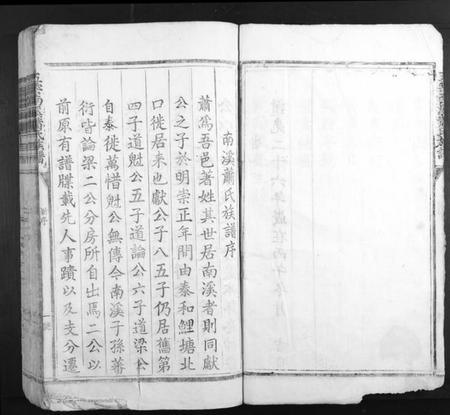 南溪蕭氏族譜序
蕭爲吾邑著姓其世居南溪者則同獻
公之子於明崇正年間由泰和鯉塘北
口徙居来也獻公子八五子仍居舊第
四子道魁公五子道論公六子道梁公
自泰徙萬惜魁公無傳今南溪子孫蕃
衍皆論梁二公分房所自出焉二公以
前原有譜牒載先人事蹟以及支分遷